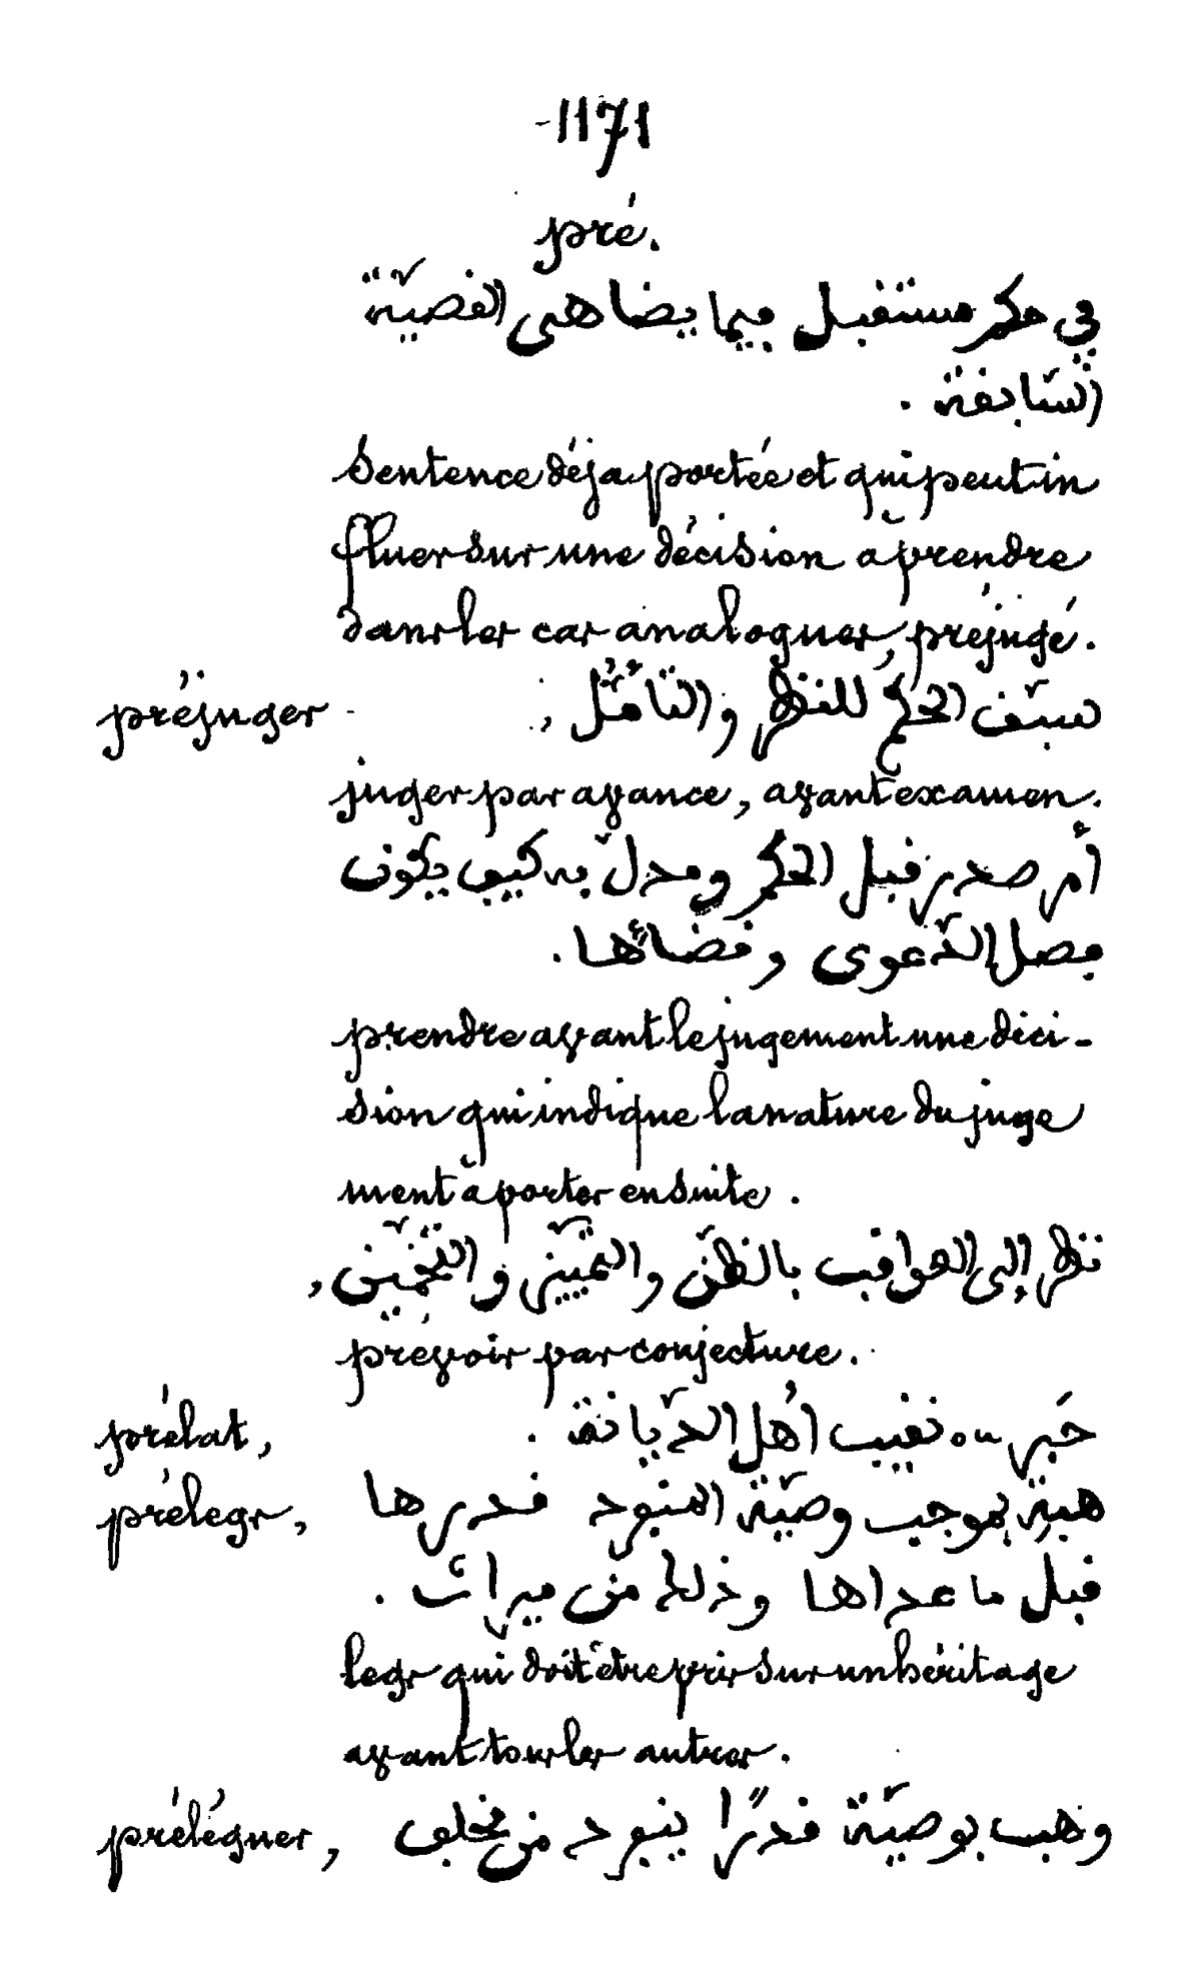 -1171
pré.
في حكم مستقبل فيما يضاهى القضيّة
السّابقة .
sentence déja portée et qui peut in
fluer sur une décision à prendre
dans les cas analogues, préjugé.
préjuger سبّق الحكمَ للنظر والتأمُّل ,
juger par avance, avant examen.
أمر صدر قبل الحكم ومدلّ به كيف يكون
فصل الدّعوى وقضائها .
prendre avant le jugement une déci-
sion qui indique la nature du juge
ment à porter ensuite .
نظر إلى العواقب بالظّن والتّمييز والتّخمين ,
prévoir par conjecture .
prélat, حَبر ou نقيب أهل الدّيانة .
prélegs, هبة بموجب وصيّة المنفرد قدرها
قبل ما عداها وذلك من ميراث .
legs qui doit être pris sur un héritage
avant tous les autres .
préléguer, وهب بوصيّة قدرًا ينفرد من مخلف